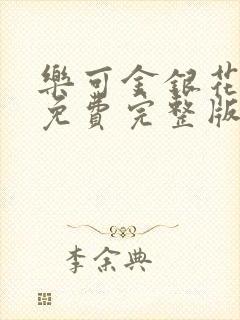 樂可金銀花
免費完整版
李余典